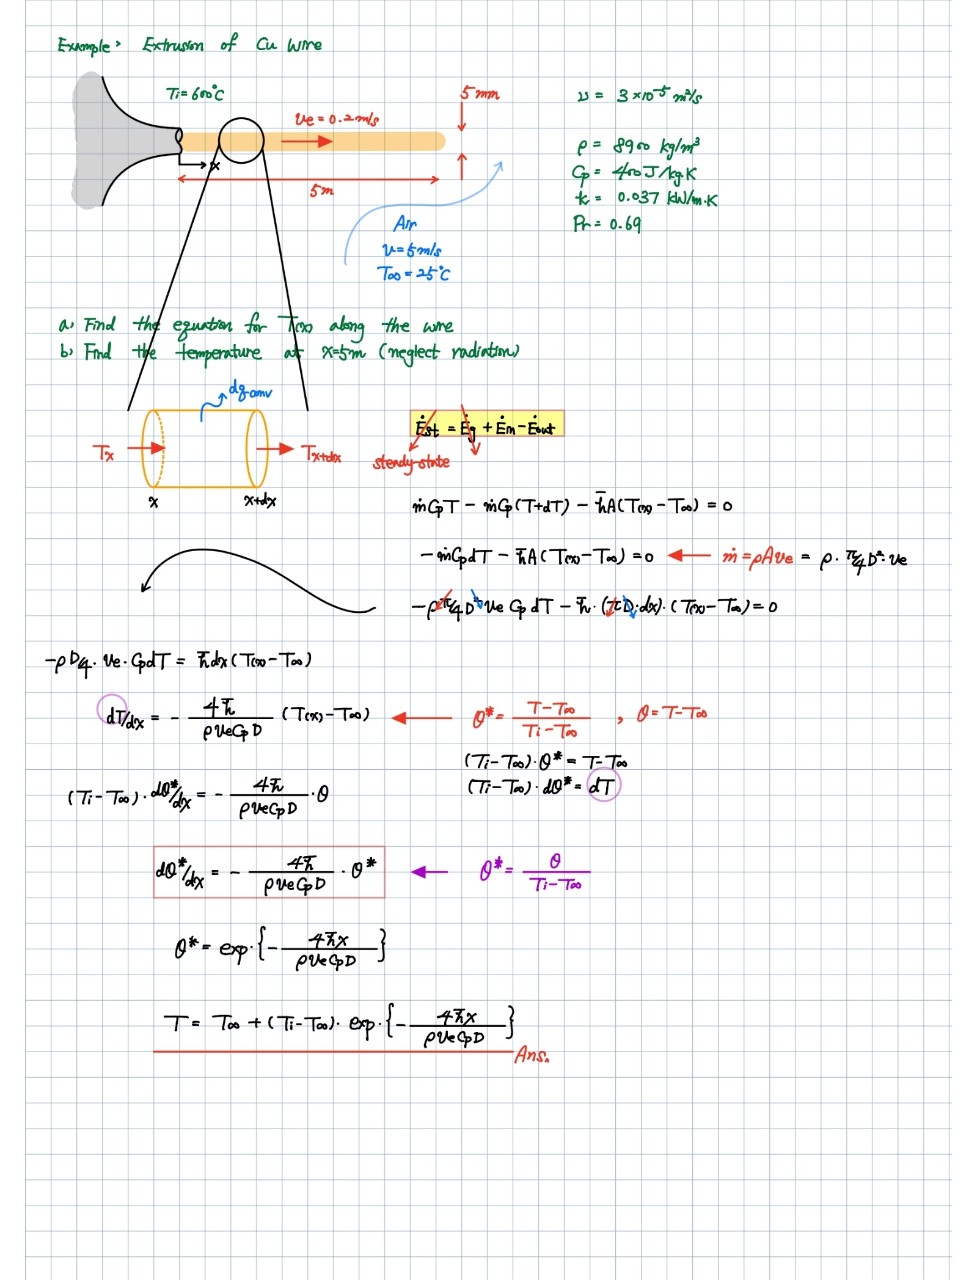 Example> Extrusion of Cu wire
Ti = 600°C
5 mm
Ve = 0.2 m/s
x
5m
Air
V = 5 m/s
T∞ = 25°C
ν = 3 × 10⁻⁵ m²/s
ρ = 8900 kg/m³
Cp = 400 J/kg.K
k = 0.037 kW/m.K
Pr = 0.69
a) Find the equation for T(x) along the wire
b) Find the temperature at x=5m (neglect radiation)
dq conv
Tx
Tx+dx
x
x+dx
Ėst = Ėg + Ėin − Ėout
steady-state
ṁCpT − ṁCp(T+dT) − h̄A(T(x) − T∞) = 0
−ṁCpdT − h̄A(T(x) − T∞) = 0 ← ṁ = ρAVe = ρ · π/4 D² · Ve
−ρ π/4 D² Ve Cp dT − h̄ · (πD·dx) · (T(x) − T∞) = 0
−ρ D/4 · Ve · CpdT = h̄dx (T(x) − T∞)
dT/dx = − 4h̄/(ρVeCpD) (T(x) − T∞) ← θ* = (T − T∞)/(Ti − T∞) , θ = T − T∞
(Ti − T∞) · θ* = T − T∞
(Ti − T∞) · dθ* = dT
(Ti − T∞) · dθ*/dx = − 4h̄/(ρVeCpD) · θ
dθ*/dx = − 4h̄/(ρVeCpD) · θ* ← θ* = θ/(Ti − T∞)
θ* = exp·{− 4h̄x/(ρVeCpD)}
T = T∞ + (Ti − T∞) · exp·{− 4h̄x/(ρVeCpD)}
Ans.